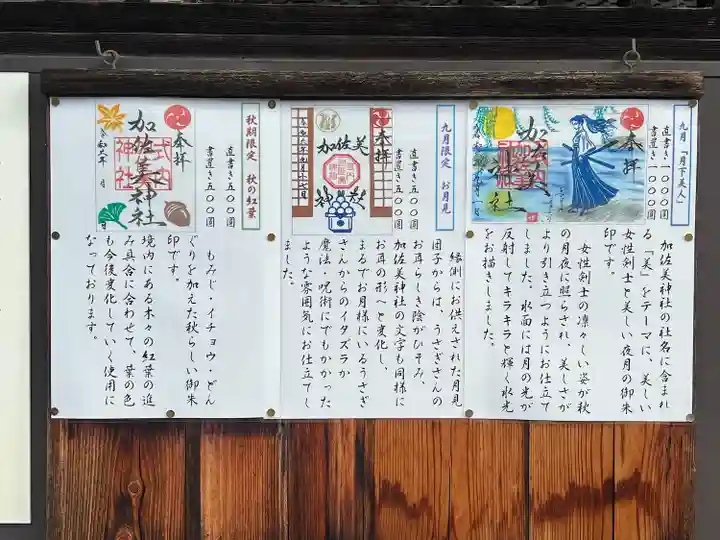 九月「月下美人」
直書き一〇〇〇圓
書置き一〇〇〇圓
奉拝
加佐美神社
加佐美神社の社名に含まれ
る「美」をテーマに、美しい
女性剣士と美しい夜月の御朱
印です。
女性剣士の凛々しい姿が秋
の月夜に照らされ、美しさが
より引き立つようにお仕立て
しました。水面には月の光が
反射してキラキラと輝く水光
をお描きしました。
九月限定 お月見
直書き五〇〇圓
書置き五〇〇圓
奉拝
加佐美
神社
縁側にお供えされた月見
団子からは、うさぎさんの
お耳らしき陰がひそみ、
加佐美神社の文字も同様に
お耳の形へと変化し、
まるでお月様にいるうさぎ
さんからのイタズラか
魔法・呪術にでもかかった
ような雰囲気にお仕立てし
ました。
秋期限定 秋の紅葉
直書き五〇〇圓
書置き五〇〇圓
奉拝
加佐美神社
令和六年 月 日
もみじ・イチョウ・どん
ぐりを加えた秋らしい御朱
印です。
境内にある木々の紅葉の進
み具合に合わせて、葉の色
も今後変化していく使用に
なっております。